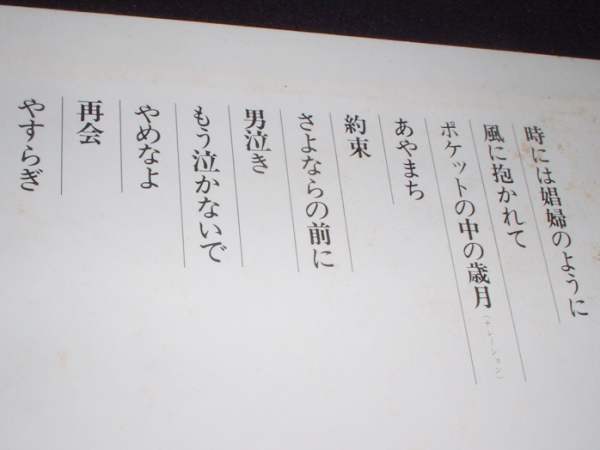 時には娼婦のように
風に抱かれて
ポケットの中の歳月（ナレーション）
あやまち
約束
さよならの前に
男泣き
もう泣かないで
やめなよ
再会
やすらぎ